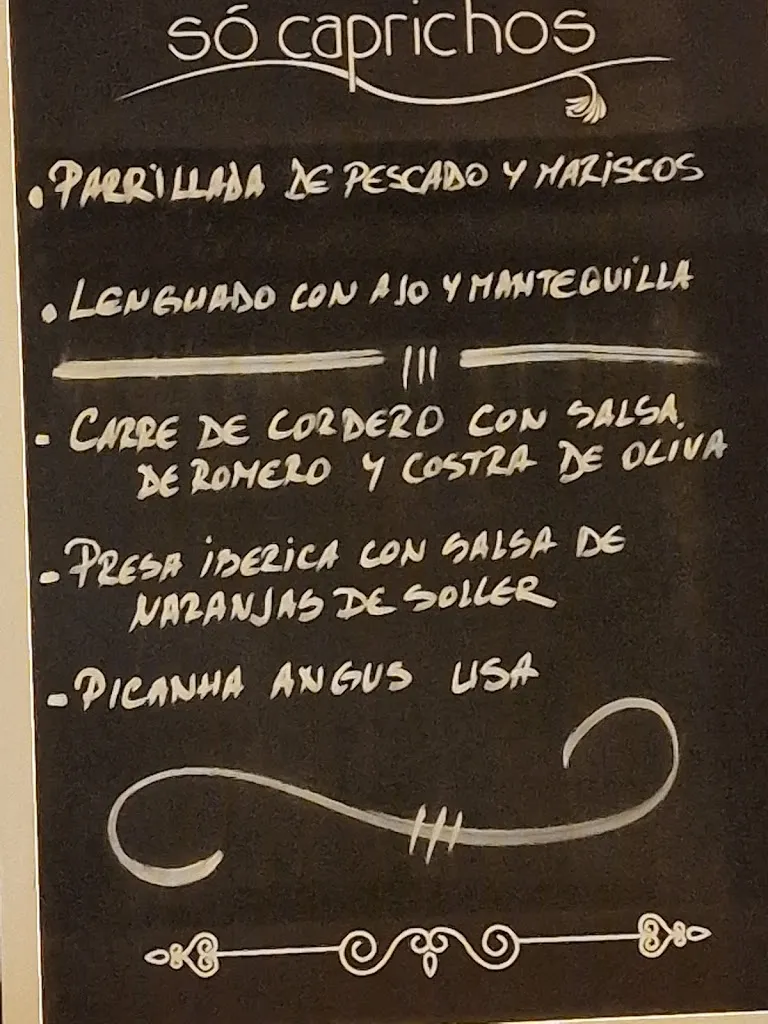 só caprichos
• PARRILLADA DE PESCADO Y MARISCOS
• LENGUADO CON AJO Y MANTEQUILLA
- CARRE DE CORDERO CON SALSA
DE ROMERO Y COSTRA DE OLIVA
- PRESA IBERICA CON SALSA DE
NARANJAS DE SOLLER
- PICANHA ANGUS USA